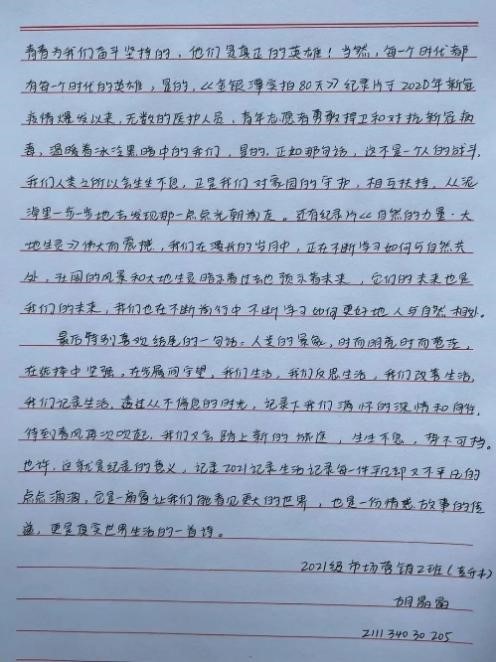 青春为我们奋斗坚持的，他们是真正的英雄！当然，每一个时代都
有每一个时代的英雄，是的，《金银潭实拍80天》纪录片于2020年新冠
疫情爆发以来，无数的医护人员、青年志愿者勇敢捍卫和对抗新冠病
毒，温暖着冰冷黑暗中的我们，是的，正如那句话，这不是一个人的战斗，
我们人类之所以会生生不息，正是我们对家园的守护，相互扶持，从泥
海里一步一步地去发现那一点点光朝前走。还有纪录片《自然的力量·大
地生灵》伟大而震撼，我们在漫长的岁月中，正在不断学习如何与自然共
处，祖国的风景和大地生灵暗示着过去也预示着未来，它们的未来也是
我们的未来，我们也在不断前行中不断学习如何更好地人与自然相处。
最后特别喜欢结尾的一句话：人类的景象，时而明亮时而苍茫，
在选择中坚强，在发展间守望，我们生活，我们反思生活，我们改善生活，
我们记录生活，透过从不停息的时光，记录下我们满怀的深情和向往，
待到春风再次吹起，我们又会踏上新的旅途，生生不息，势不可挡。
也许，这就是纪录的意义，记录2021记录生活记录每一件平凡却又不平凡的
点点滴滴，它是一扇窗让我们能看见更大的世界，也是一份情感故事的传
递，更是真实世界生活的一首诗。
2021级市场营销2班（专升本）
胡
211134030205